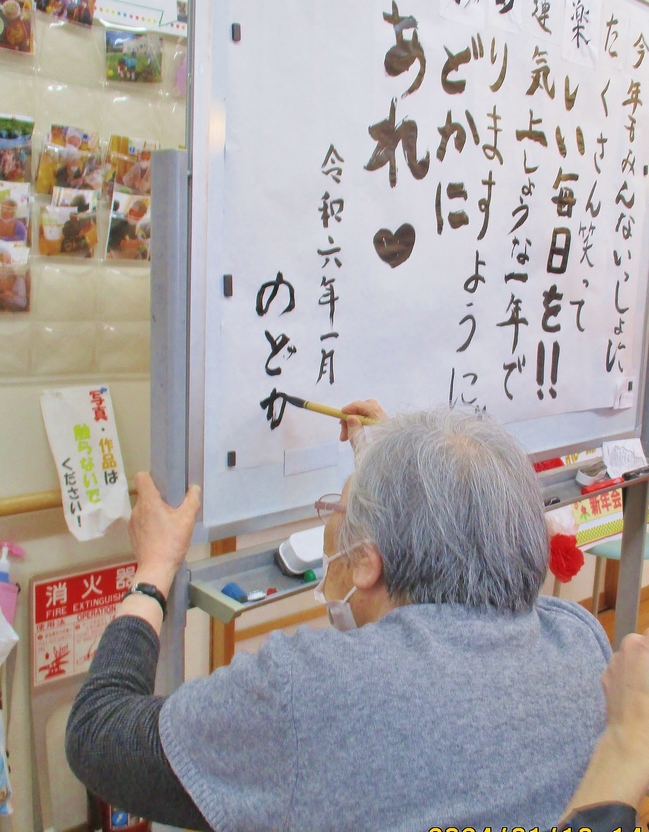 今年もみんないっしょに
たくさん笑って
楽しい毎日を!!
運気上しょうな一年で
りますように
どかに
あれ♥
令和六年一月
のどか
写真・作品は
触らないで
ください！
消火器
FIRE EXTINGUISHER
使用法
OPERATION
新年会